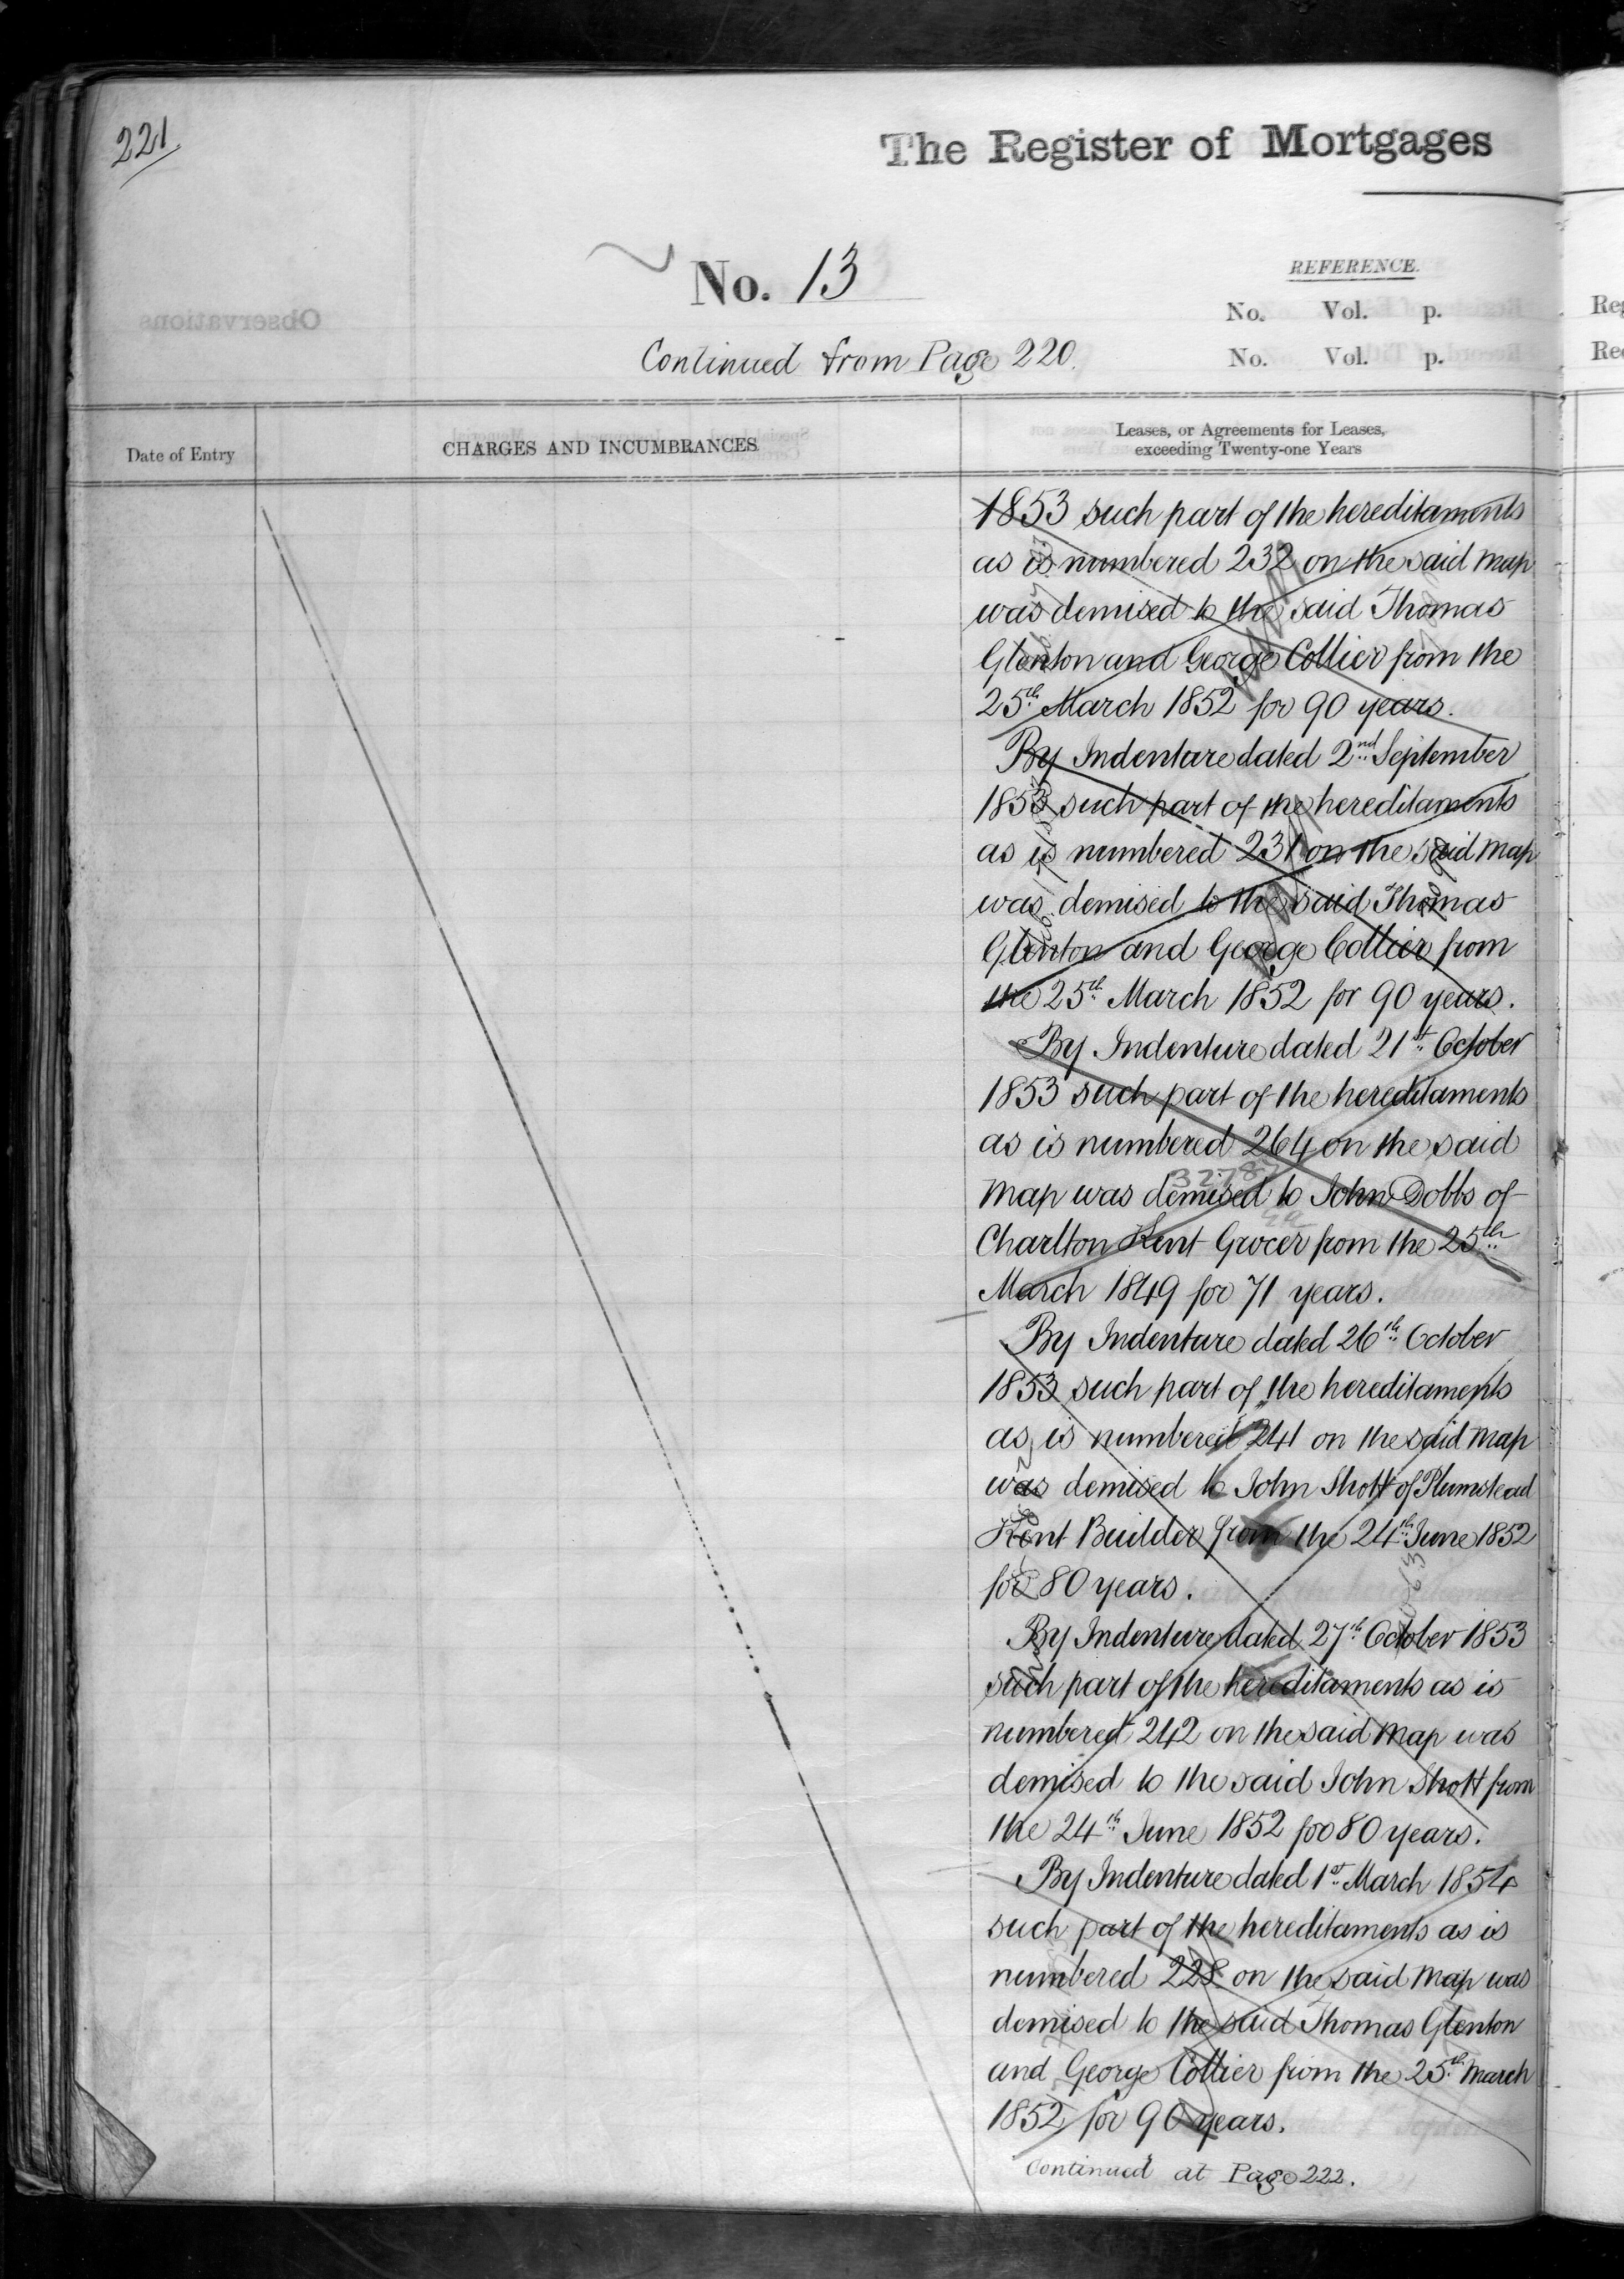 221
The Register of Mortgages
No. 13
REFERENCE.
No. Vol. p.
Continued from Page 220.
No. Vol. p.
Date of Entry
CHARGES AND INCUMBRANCES
Leases, or Agreements for Leases,
exceeding Twenty-one Years
1853 such part of the hereditaments
as is numbered 232 on the said map
was demised to the said Thomas
Glenton and George Collier from the
25th March 1852 for 90 years.
By Indenture dated 2nd September
1853 such part of the hereditaments
as is numbered 231 on the said map
was demised to the said Thomas
Glenton and George Collier from
the 25th March 1852 for 90 years.
By Indenture dated 21st October
1853 such part of the hereditaments
as is numbered 264 on the said
map was demised to John Dobbs of
Charlton Kent Grocer from the 25th
March 1849 for 71 years.
By Indenture dated 26th October
1853 such part of the hereditaments
as is numbered 241 on the said map
was demised to John Shott of Plumstead
Kent Builder from the 24th June 1852
for 80 years.
By Indenture dated 27th October 1853
such part of the hereditaments as is
numbered 242 on the said map was
demised to the said John Shott from
the 24th June 1852 for 80 years.
By Indenture dated 1st March 1854
such part of the hereditaments as is
numbered 228 on the said map was
demised to the said Thomas Glenton
and George Collier from the 25th March
1852 for 90 years.
Continued at Page 222.